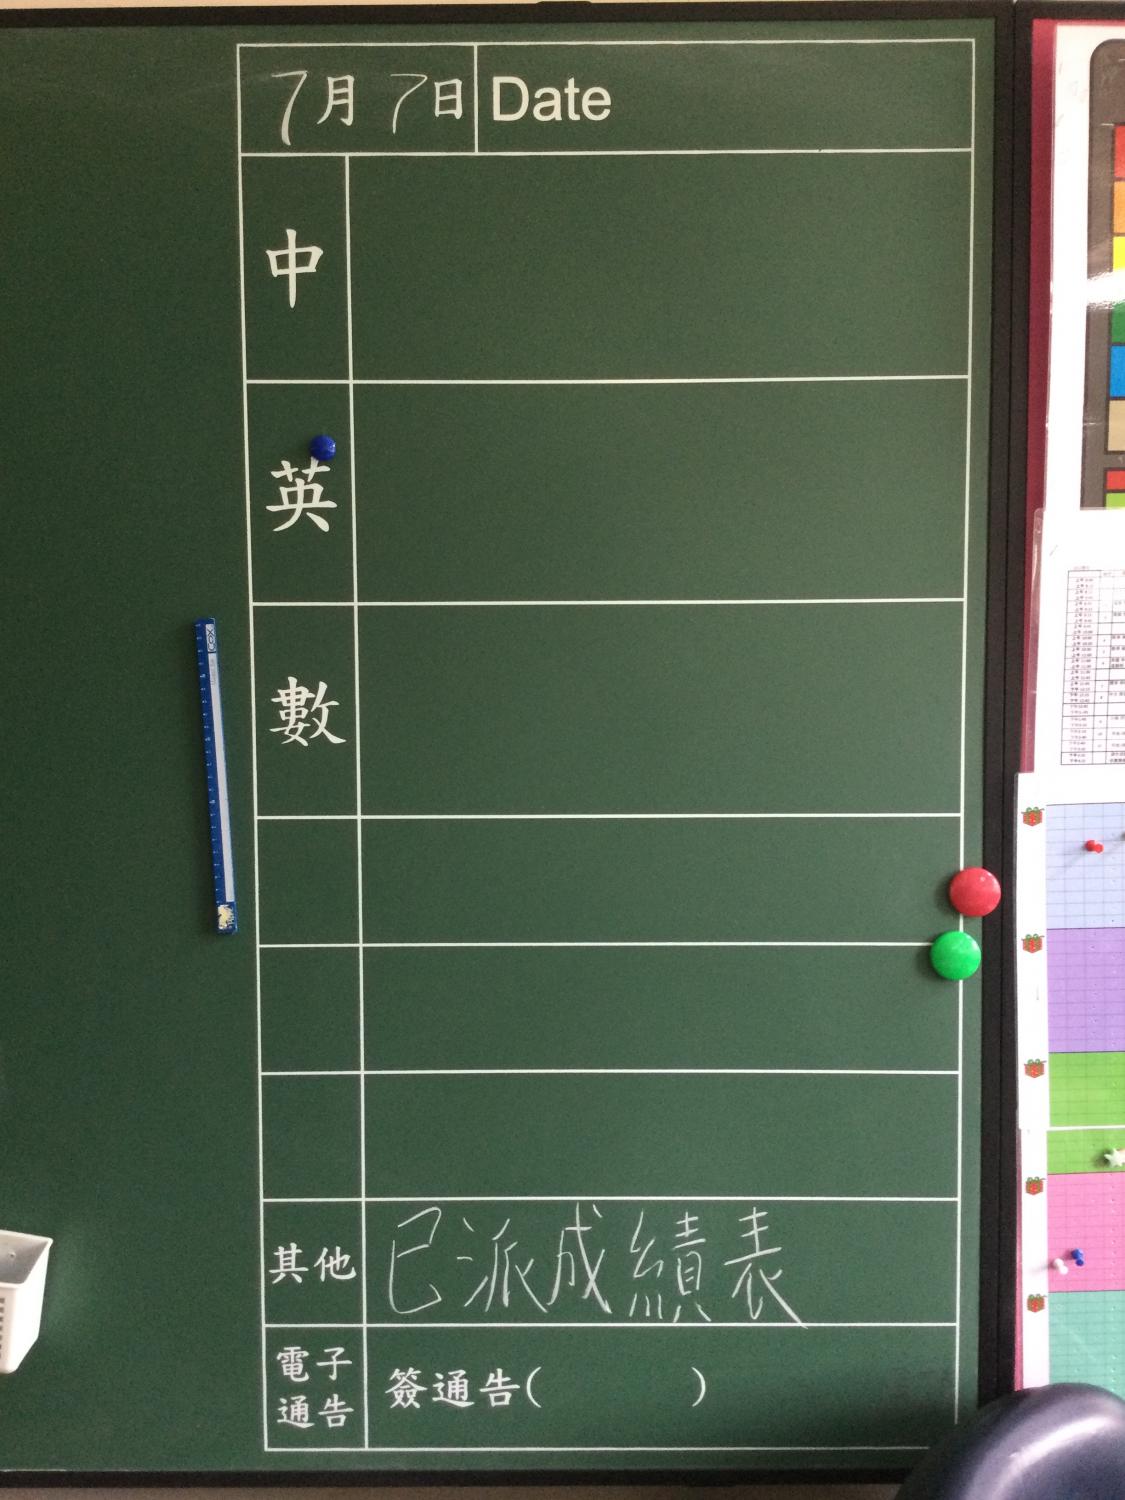 7月7日 Date
中
英
數
其他 已派成績表
電子
通告 簽通告( )